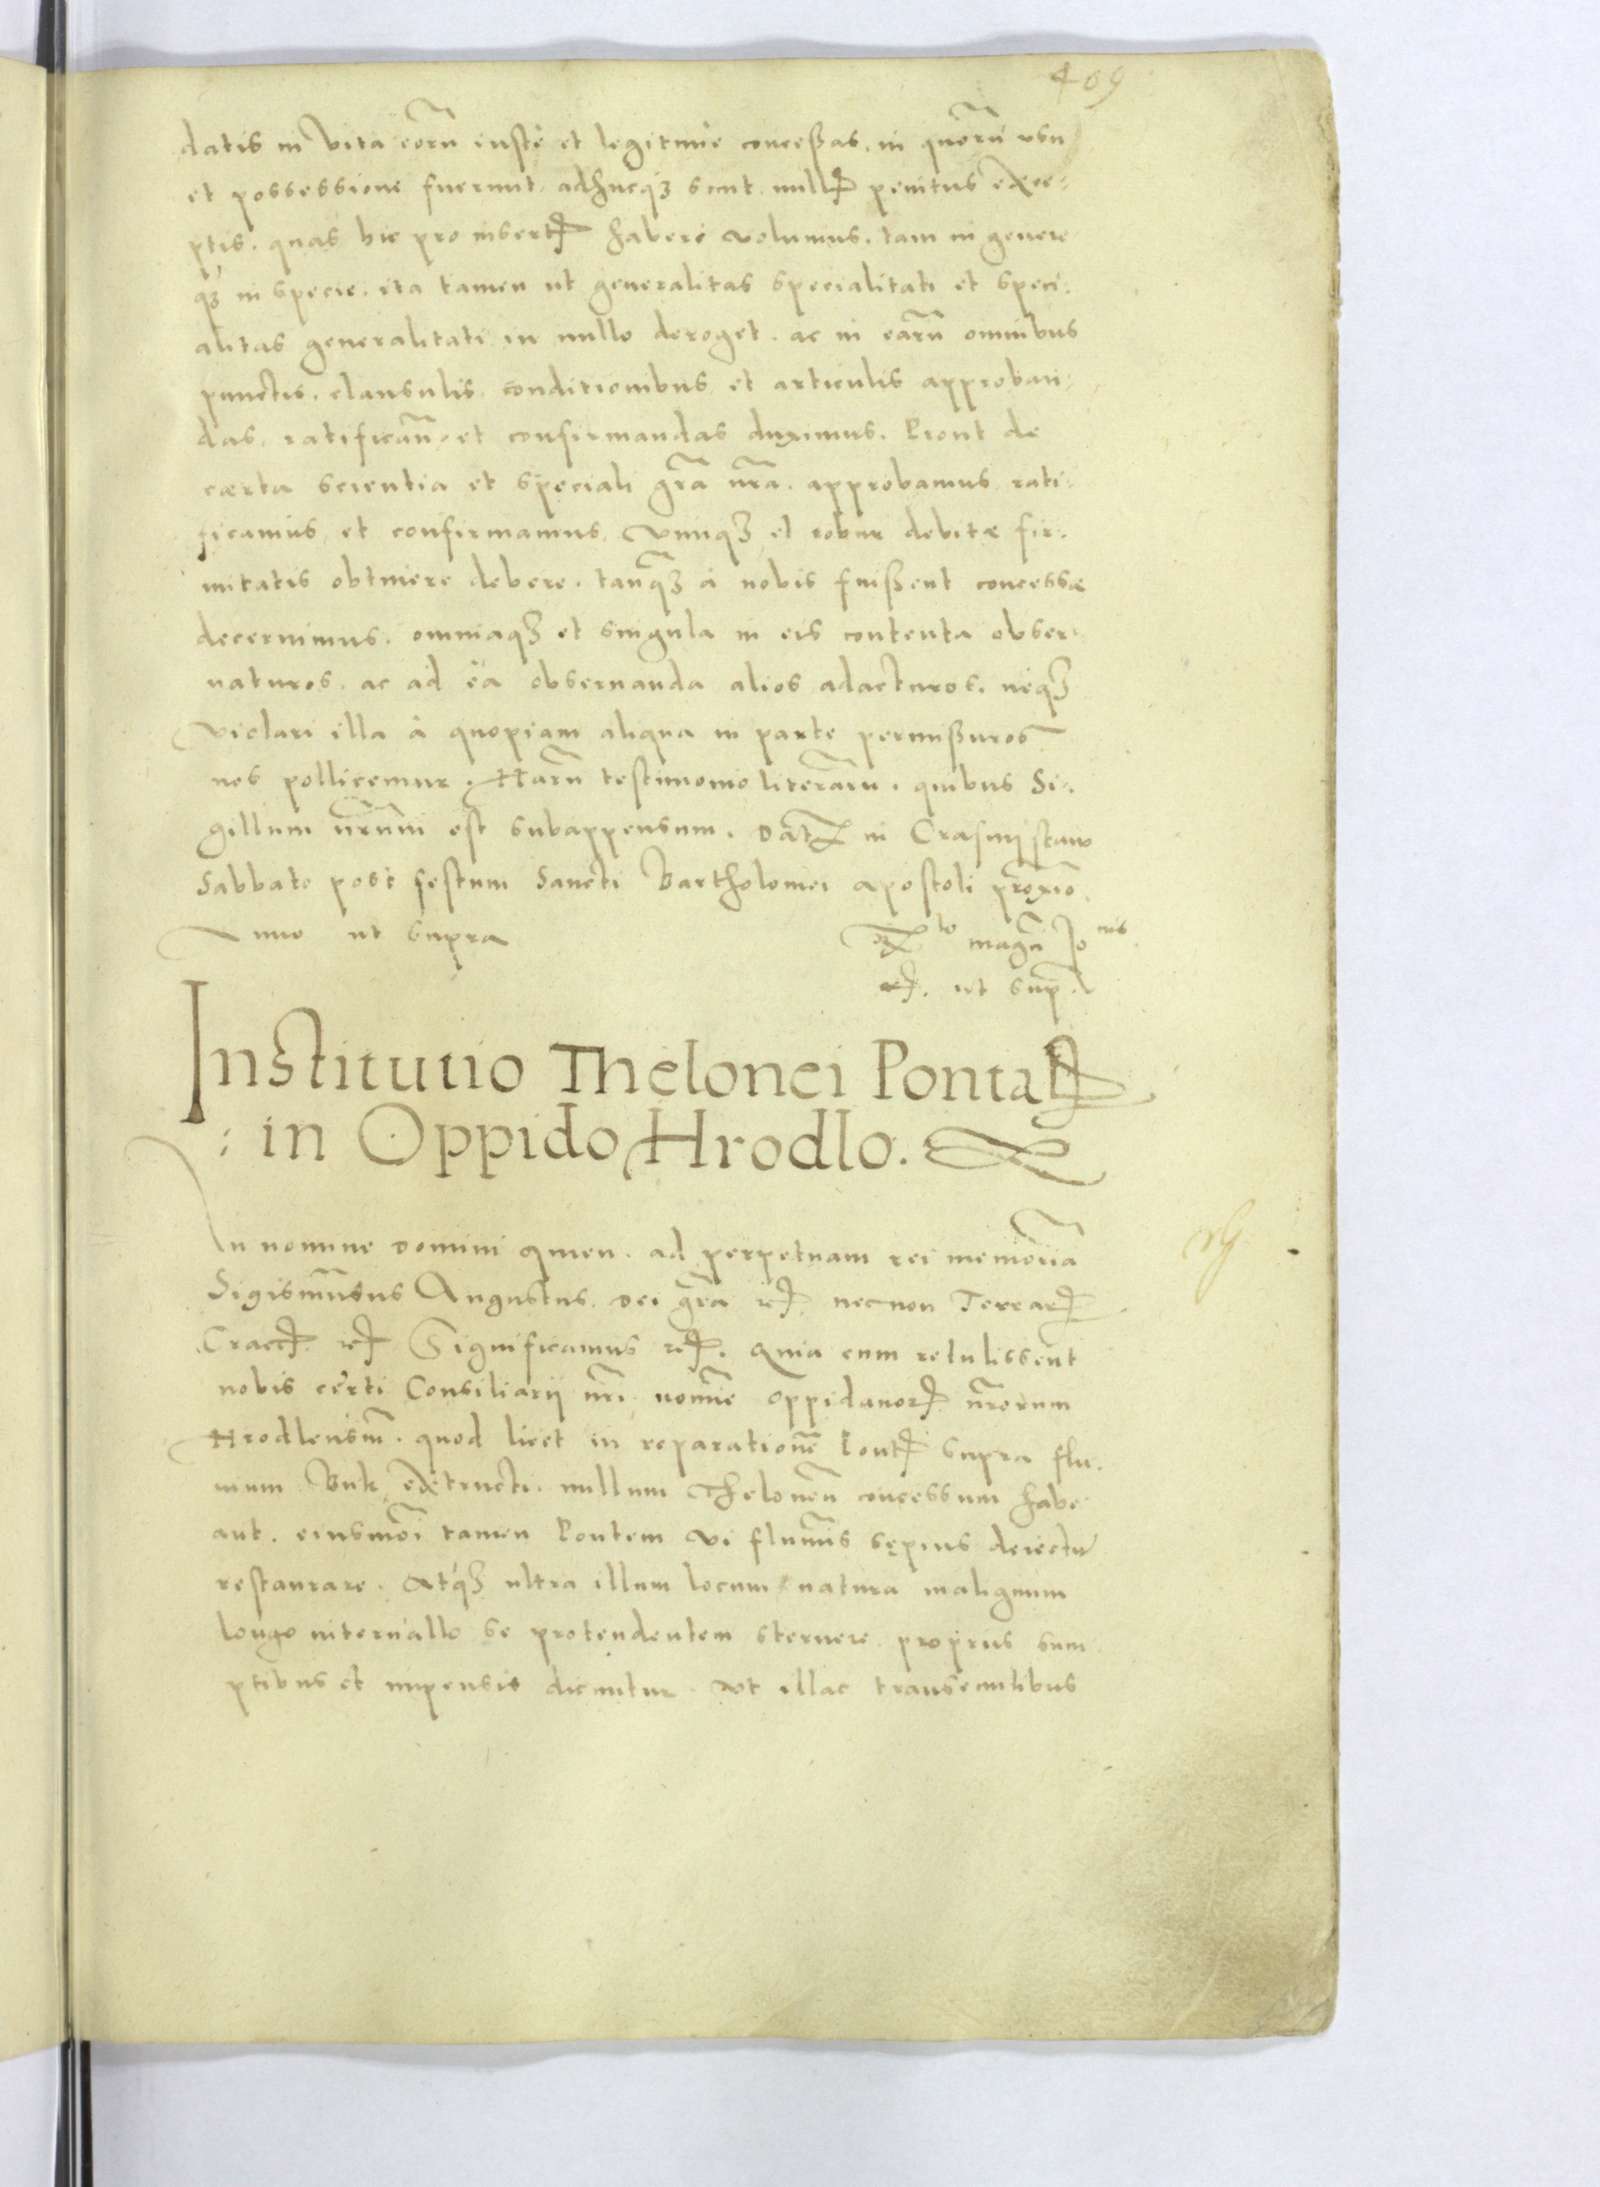 409
datis in vita eorũ iustè et legitime concessas, in quorũ usu
et possessione fuerunt adhucq3 sunt nullꝭ penitus exce-
ptis. quas hic pro insertꝭ haberi volumus. tam in genere
q3 in specie. ita tamen ut generalitas specialitati et speci-
alitas generalitati in nullo deroget. ac in earũ omnibus
punctis, clausulis conditionibus et articulis approban-
das, ratificañ. et confirmandas duximus. Prout de
certa scientia et speciali gr̃a nr̃a. approbamus rati-
ficamus et confirmamus vimq3 et robur debitæ fir-
mitatis obtinere debere. tanq̃3 à nobis fuissent concessæ
decernimus. omniaq3 et singula in eis contenta obser-
uaturos. ac ad ea obseruanda alios adacturos. neq3
violari illa à quopiam aliqua in parte permissuros
nos pollicemur. Harũ testimonio literarũ. quibus Si-
gillum nr̃um est subappensum. Datꝭ in Crasnijstaw
Sabbato post festum Sancti Bartholomei apostoli proximo
Anno ut supra
magci Jo
ut sup
Institutio Thelonei Pontalꝭ
in Oppido Hrodlo.
In nomine Domini Amen. ad perpetuam rei memoria
Sigismũdus Augustus. Dei gr̃a rꝭ. necnon Terrarꝭ
Cracꝭ rꝭ Significamus rꝭ. Quia cum retulissent
nobis certi Consiliarij nr̃i nomine Oppidanorꝭ nr̃orum
Hrodlensiũ. quod licet in reparationẽ Pontꝭ supra flu-
uium Buk extructi. nullum Theloneũ concessum habe
ant. eiusmõi tamen Pontem vi fluminis sępius deiectũ
restaurare. Atq3 ultra illum locum natura malignum
longo interuallo se protendentem sternere proprius sum
ptibus et impensis dicuntur. Ut illac transeuntibus